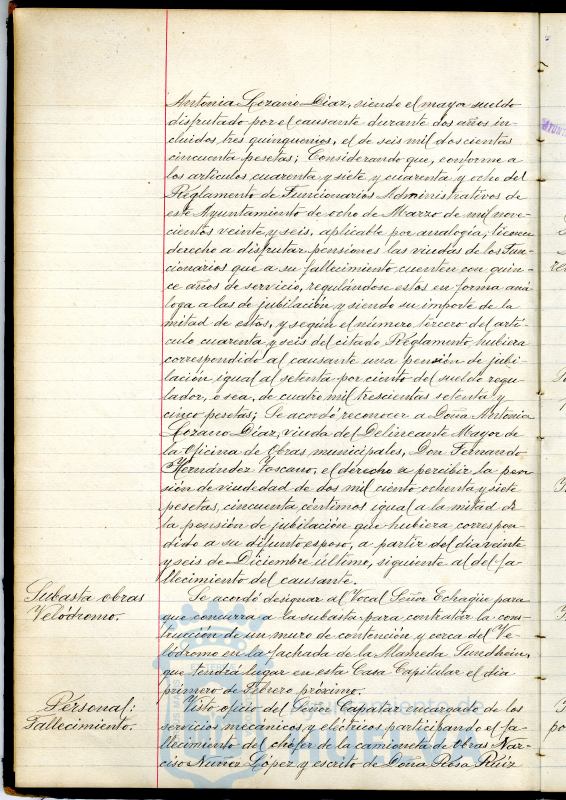 Antonia Lozano Díaz, siendo el mayor sueldo
disfrutado por el causante durante dos años in-
cluidos tres quinquenios, el de seis mil doscientas
cincuenta pesetas; Considerando que, conforme a
los artículos cuarenta y siete y cuarenta y ocho del
Reglamento de Funcionarios Administrativos de
este Ayuntamiento de ocho de Marzo de mil nove-
cientos veinte y seis, aplicable por analogía, tienen
derecho a disfrutar pensiones las viudas de los Fun-
cionarios que a su fallecimiento cuenten con quin-
ce años de servicio, regulándose estos en forma aná-
loga a las de jubilación y siendo su importe de la
mitad de estas, y según el número tercero del artí-
culo cuarenta y seis del citado Reglamento hubiera
correspondido al causante una pensión de jubi-
lación igual al setenta por ciento del sueldo regu-
lador, o sea, de cuatro mil trescientas setenta y
cinco pesetas; Se acordó reconocer a Doña Antonia
Lozano Díaz, viuda del Delineante Mayor de
la Oficina de Obras municipales, Don Fernando
Hernández Toscano, el derecho a percibir la pen-
sión de viudedad de dos mil ciento ochenta y siete
pesetas, cincuenta céntimos igual a la mitad de
la pensión de jubilación que hubiera correspon-
dido a su difunto esposo, a partir del día veinte
y seis de Diciembre último, siguiente al del fa-
llecimiento del causante.
Subasta obras
Velódromo.
Se acordó designar al Vocal Señor Echagüe para
que concurra a la subasta para contratar la cons-
trucción de un muro de contención y cerca del Ve-
lódromo en la fachada de la Alameda Sundheim,
que tendrá lugar en esta Casa Capitular el día
primero de Febrero próximo.
Personal:
Fallecimiento.
Visto oficio del Señor Capataz encargado de los
servicios mecánicos y eléctricos participando el fa-
llecimiento del chófer de la camioneta de obras Nar-
ciso Núñez López y escrito de Doña Rosa Ruiz